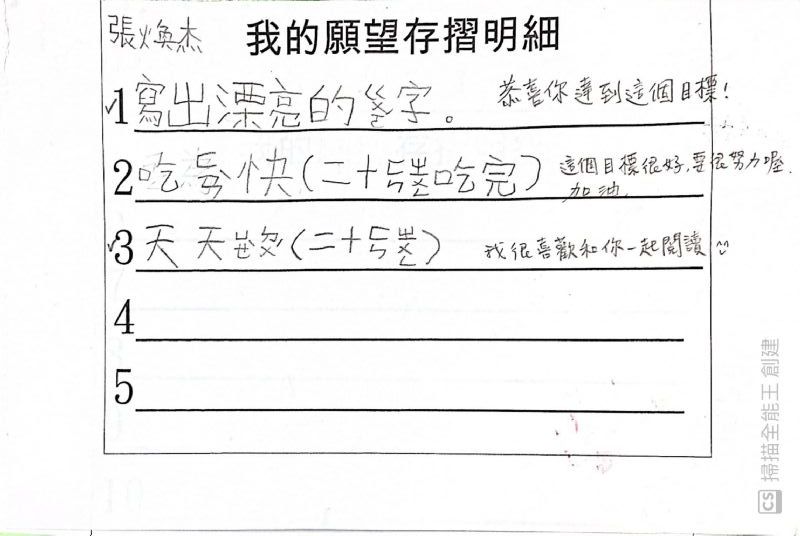 張煥杰
我的願望存摺明細
✓1 寫出漂亮的字。 恭喜你達到這個目標!
2 吃 快(二十 吃完) 這個目標很好,要很努力喔.
加油.
✓3 天天 (二十 ) 我很喜歡和你一起閱讀 ^^
4
5
CS 掃描全能王 創建